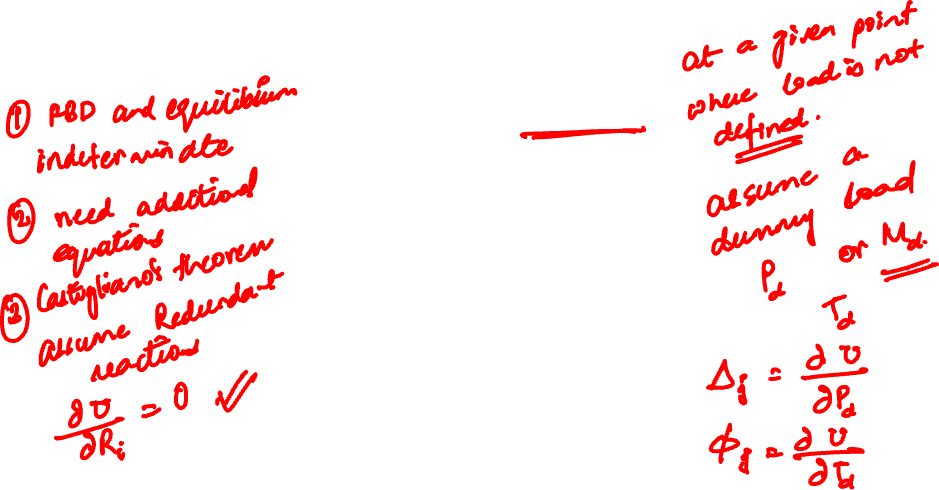 ① FBD and equilibium
indeterminate
② need additional
equations
③ Castigliano's theorem
assume Redundant
reactions
∂U/∂Rᵢ = 0 ✓
at a given point
where load is not
defined.
assume a
dummy load
P_d or M_d.
T_d
Δ_j = ∂U/∂P_d
ϕ_j = ∂U/∂T_d